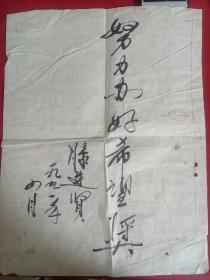 努力办好希望奖
滕进贤
一九九二年
四月